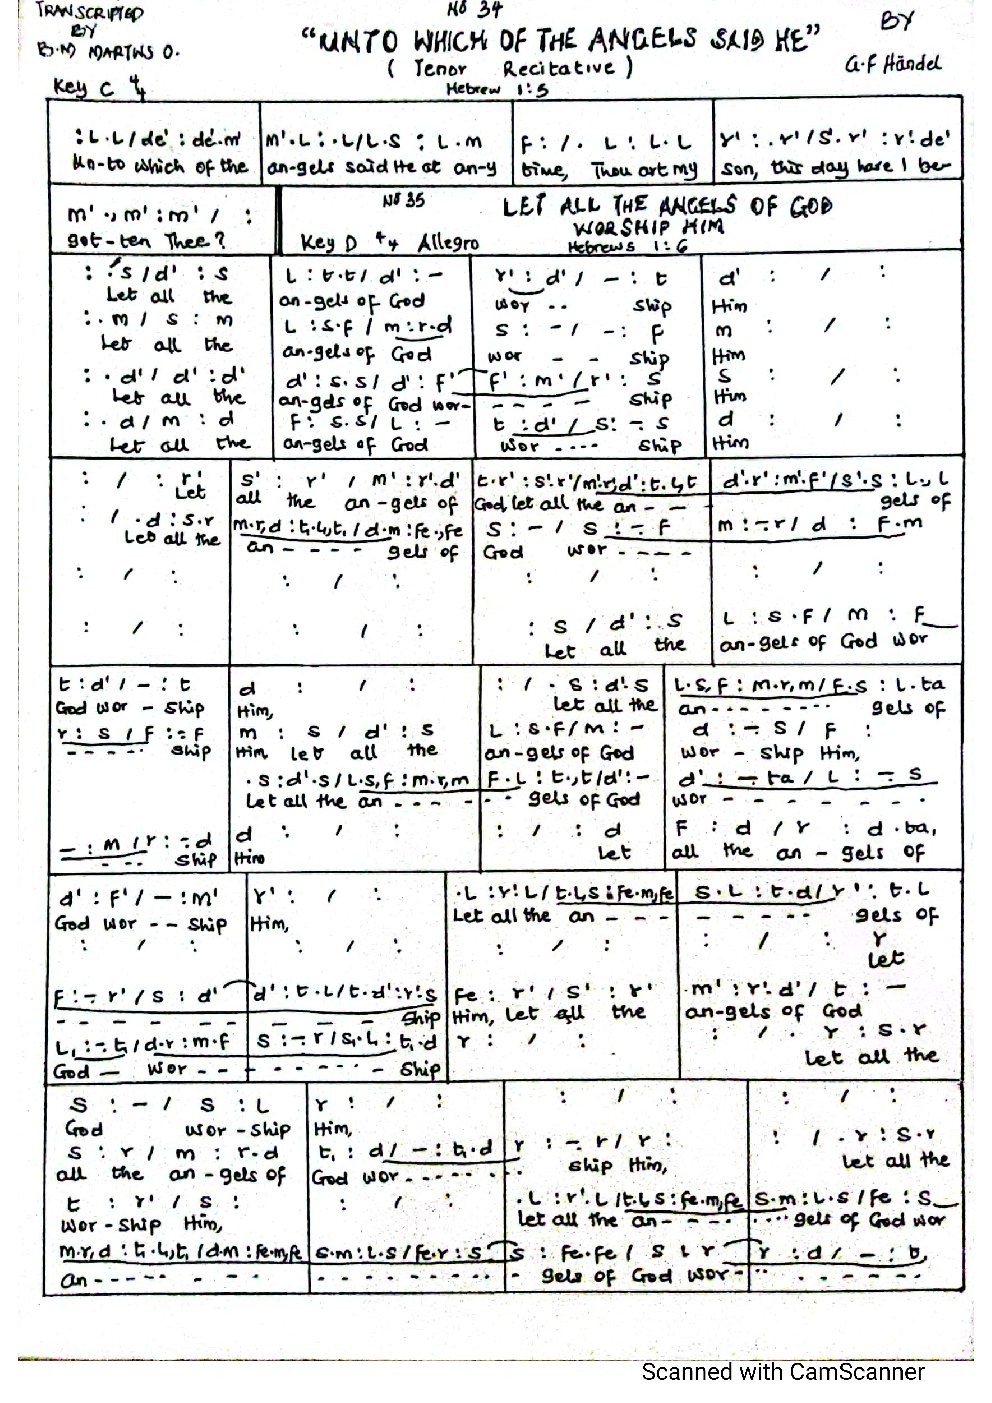 TRANSCRIPTED
BY
B.M MARTINS O.
No 34
"UNTO WHICH OF THE ANGELS SAID HE"
( Tenor Recitative )
Hebrew 1:5
BY
G.F Händel
Key C 4/4
:L.L/de' : de'.m' | m'.L : .L/L.S : L.m | f : /. L : L.L | r' : .r'/S'.r' : r'.de'
Un-to which of the | an-gels said He at an-y | time, Thou art my | son, this day have I be-
m' ., m' : m' / :
got-ten Thee?
No 35
LET ALL THE ANGELS OF GOD
WORSHIP HIM
Key D 4/4 Allegro
Hebrews 1:6
: .s / d' : s | L : t.t / d' : - | r' : d' / - : t | d' : / :
Let all the | an-gels of God | wor -- ship | Him
: . m / s : m | L : s.f / m : r.d | s : - / - : f | m : / :
Let all the | an-gels of God | wor - - ship | Him
: . d' / d' : d' | d' : s.s / d' : f' | f' : m' / r' : s | s : / :
Let all the | an-gels of God wor- | - - - - ship | Him
: . d / m : d | f : s.s / L : - | t : d' / s : - s | d : / :
Let all the | an-gels of God | wor .... ship | Him
: / : r' | s' : r' / m' : r'.d' | t.r' : s'.r' / m'.r,d' : t.L,t | d'.r' : m'.f' / s'.s : L., L
Let | all the an-gels of | God, let all the an - - | gels of
: / .d : s.r | m.r,d : t.L,t, / d.m : fe.,fe | s : - / s : - f | m : - r / d : f.m
Let all the | an - - - - gels of | God wor - - - -
: / : | : / : | : / : | : / :
: / : | : / : | : s / d' : s | L : s.f / m : f
Let all the | an-gels of God wor
t : d' / - : t | d : / : | : / . s : d'.s | L.s,f : m.r,m / f.s : L.ta
God wor - ship | Him, | let all the | an - - - - - - - - gels of
r : s / f : - f | m : s / d' : s | L : s.f / m : - | d : - s / f :
- - - - - ship | Him let all the | an-gels of God | wor - ship Him,
. s : d'.s / L.s,f : m.r,m | f.L : t.,t / d' : - | d' : - ta / L : - s
Let all the an - - - - | - - gels of God | wor - - - - - - -
- : m / r : - d | d : / : | : / : d | f : d / r : d.ta,
- - - ship | Him | Let | all the an - gels of
d' : f' / - : m' | r' : / : | .L : r'.L / t.L,s : fe.m,fe | s.L : t.d / r' : t.L
God wor -- ship | Him, | Let all the an - - - | - - - - - gels of
: / : | : / : | : / : | : / : r
let
f : - r' / s : d' | d' : t.L / t.d' : r'.s | fe : r' / s' : r' | .m' : r'.d' / t : -
- - - - - - - - - ship | Him, Let all the | an-gels of God
L, : - t, / d.r : m.f | s : - r / s,.L, : t,.d | r : / : | : / . r : s.r
God — wor - - - - - - - - ship | Let all the
s : - / s : L | r : / : | : / : | : / :
God wor-ship | Him,
s : r / m : r.d | t, : d / - : t,.d | r : - r / r : | : / .r : s.r
all the an-gels of | God wor - - - - - - | ship Him, | Let all the
t : r' / s : | : / : | .L : r'.L / t.L,s : fe.m,fe | s.m : L.s / fe : s
wor-ship Him, | let all the an- - - - | ....gels of God wor
m.r,d : t.L,t, / d.m : fe.m,fe | s.m : L.s / fe.r : s | s : fe.fe / s : r | r : d / - : t,
an - - - - - - - - | - - - - - - - - | - gels of God wor- | - - - - - - -
Scanned with CamScanner